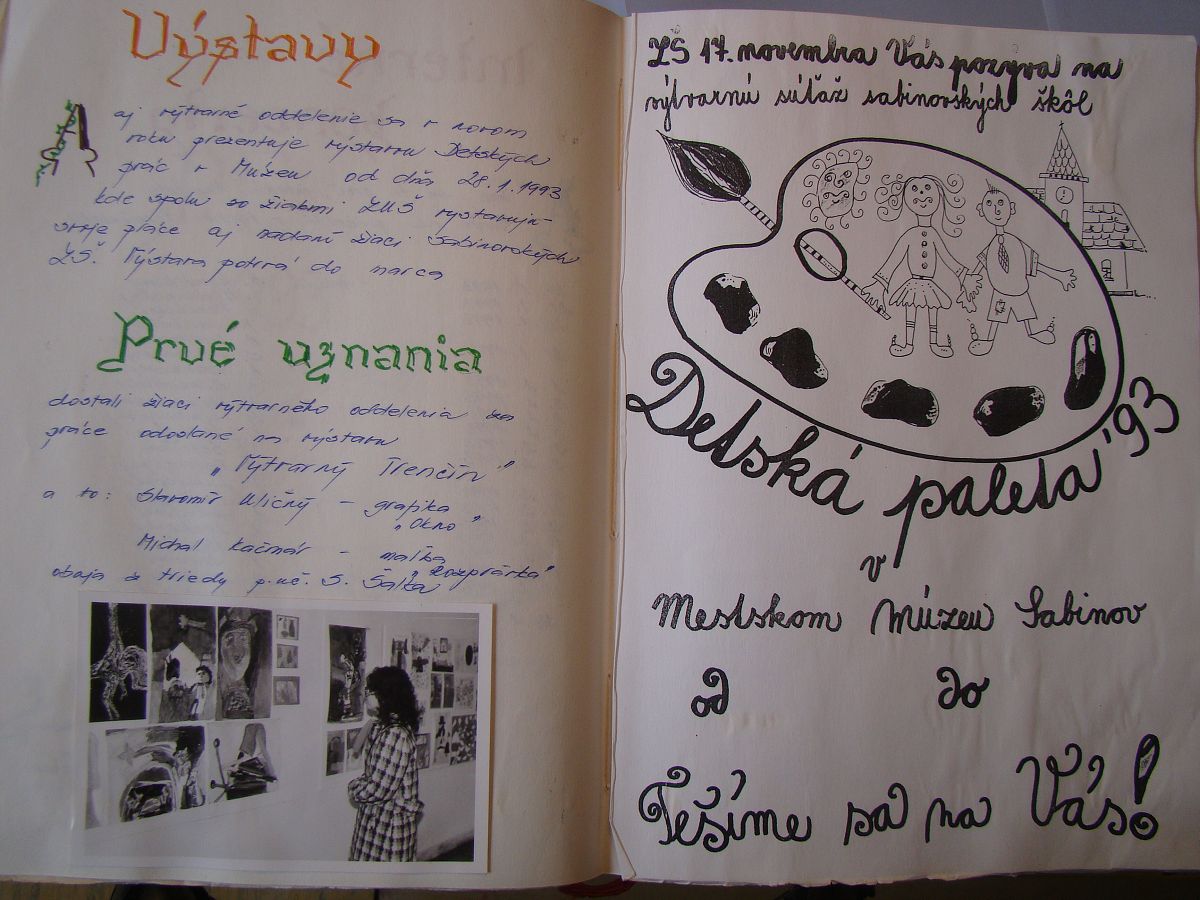 Výstavy
aj výtvarné oddelenie sa v novom
roku prezentuje výstavou Detských
prác v Múzeu od dňa 28.1.1993
kde spolu so žiakmi ĽUŠ vystavujú
svoje práce aj nadaní žiaci Sabinovských
ZŠ. Výstava potrvá do marca
Prvé uznania
dostali žiaci výtvarného oddelenia za
práce odoslané na výstavu
„Výtvarný Trenčín"
a to: Slavomír Uličný – grafika
„Okno"
Michal Kačmár – maľba
„Rozprávka"
obaja z triedy p.uč. S. Šalka
ZŠ 17. novembra Vás pozýva na
výtvarnú súťaž sabinovských škôl
Detská paleta '93
v
Mestskom múzeu Sabinov
od do
Tešíme sa na Vás!